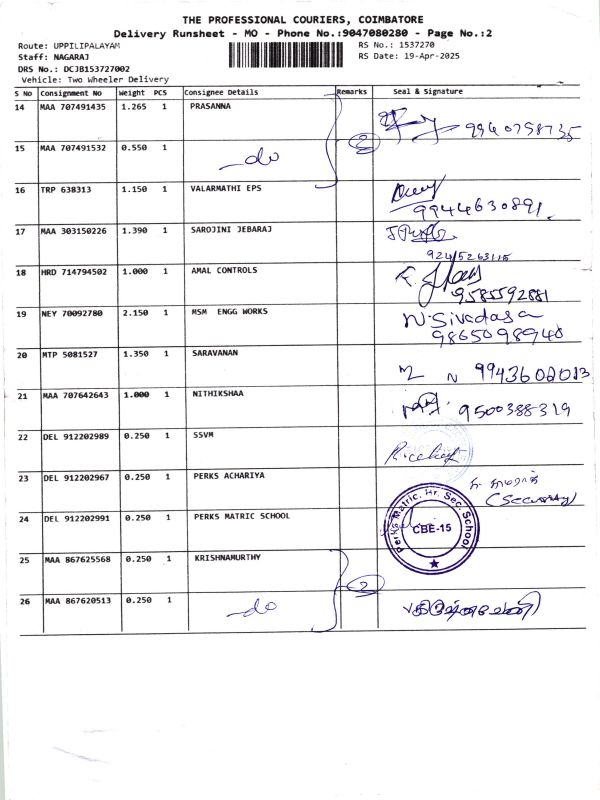 THE PROFESSIONAL COURIERS, COIMBATORE
Delivery Runsheet - MO - Phone No.:9047080280 - Page No.:2
Route: UPPILIPALAYAM
RS No.: 1537270
Staff: NAGARAJ
RS Date: 19-Apr-2025
DRS No.: DCJB153727002
Vehicle: Two Wheeler Delivery
S No Consignment No Weight PCS Consignee Details Remarks Seal & Signature
14 MAA 707491435 1.265 1 PRASANNA
9940758735
15 MAA 707491532 0.550 1 do 2
16 TRP 638313 1.150 1 VALARMATHI EPS
9944630891
17 MAA 303150226 1.390 1 SAROJINI JEBARAJ
9245263115
18 HRD 714794502 1.000 1 AMAL CONTROLS
9585592881
19 NEY 70092780 2.150 1 MSM ENGG WORKS N.Sivadasa
9865098940
20 MTP 5081527 1.350 1 SARAVANAN
N 9943602013
21 MAA 707642643 1.000 1 NITHIKSHAA
9500388319
22 DEL 912202989 0.250 1 SSVM
23 DEL 912202967 0.250 1 PERKS ACHARIYA
(Security)
24 DEL 912202991 0.250 1 PERKS MATRIC SCHOOL
Perks Matric. Hr. Sec. School
CBE-15
25 MAA 867625568 0.250 1 KRISHNAMURTHY
2
26 MAA 867620513 0.250 1 do